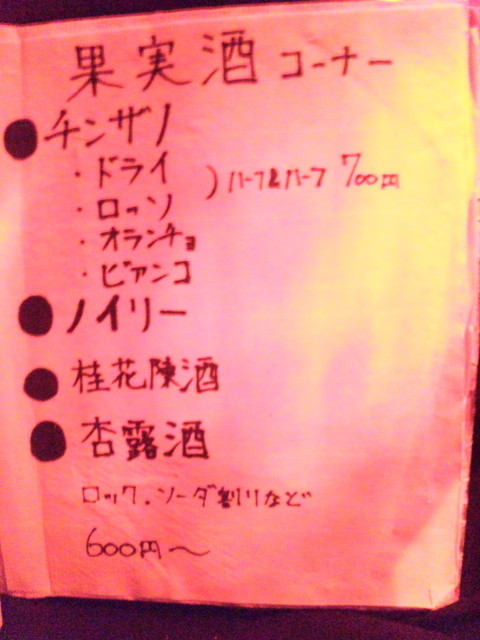 果実酒コーナー
●チンザノ
・ドライ
・ロッソ
）ハーフ&ハーフ 700円
・オランチョ
・ビアンコ
●ノイリー
●桂花陳酒
●杏露酒
ロック.ソーダ割りなど
600円〜